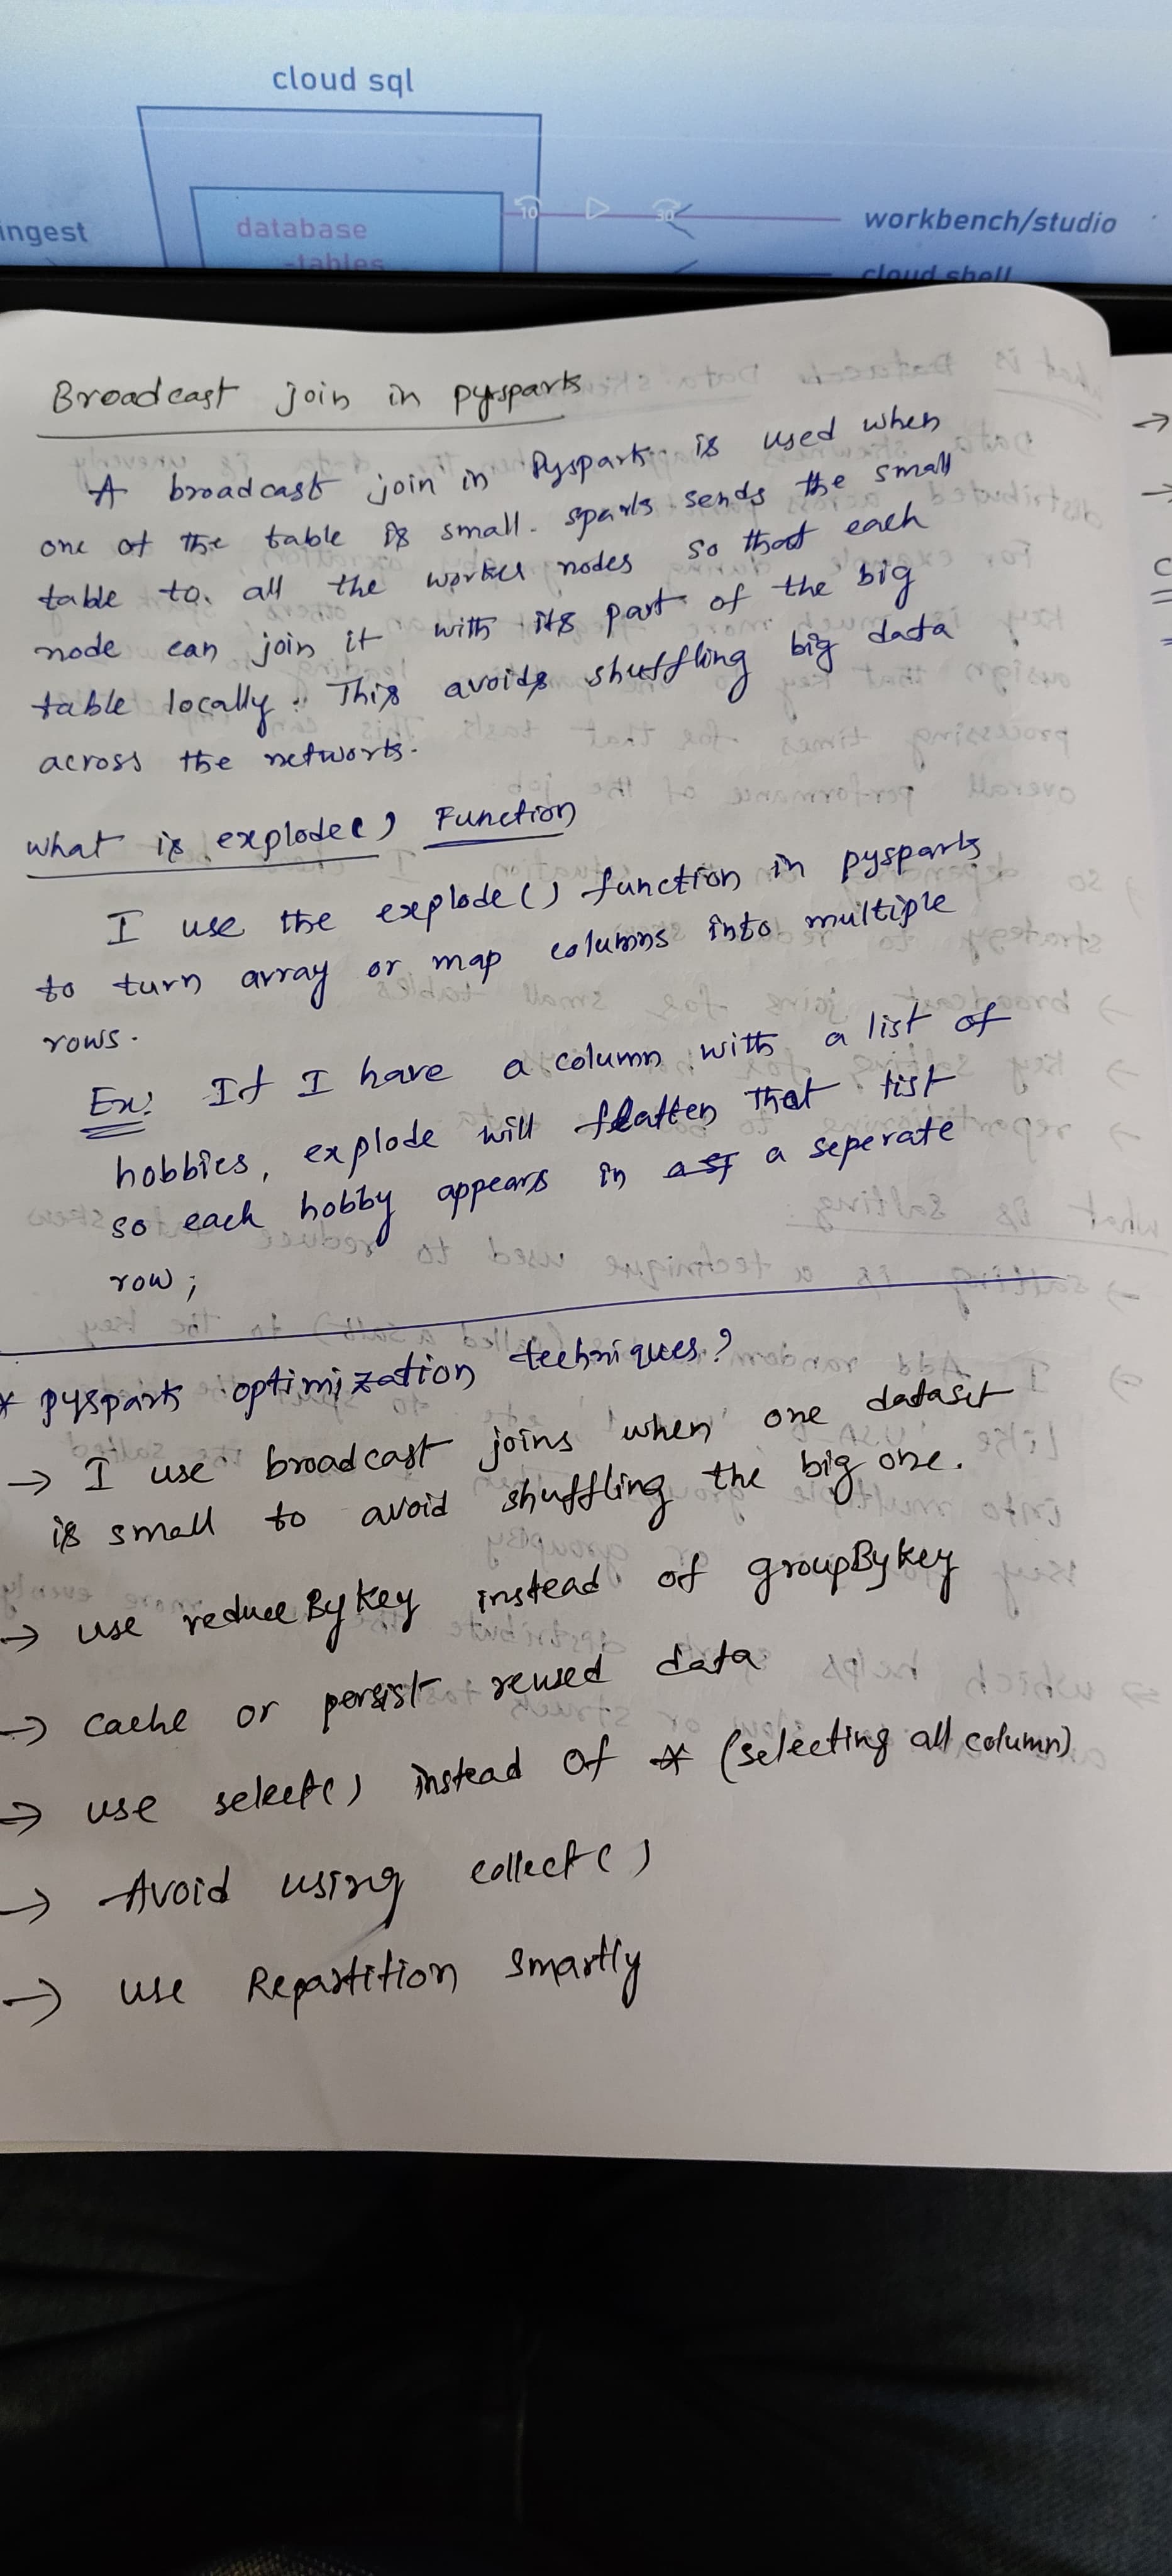 cloud sql
ingest
database
-tables
10
30
workbench/studio
cloud shell
Broadcast join in pyspark
A broadcast join in Pyspark is used when
one of the table is small. spark sends the small
table to all the worker nodes so that each
node can join it with its part of the big
table locally. This avoids shuffling big data
across the network.
what is explode() Function
I use the explode() function in pyspark
to turn array or map columns into multiple
rows.
Ex: If I have a column with a list of
hobbies, explode will flatten that list
so each hobby appears in a a seperate
row;
* pyspark optimization techniques?
→ I use broadcast joins when one dataset
is small to avoid shuffling the big one.
→ use reduceByKey instead of groupByKey
→ cache or persist reused data
→ use select() instead of * (selecting all column)
→ Avoid using collect()
→ use Repartition smartly